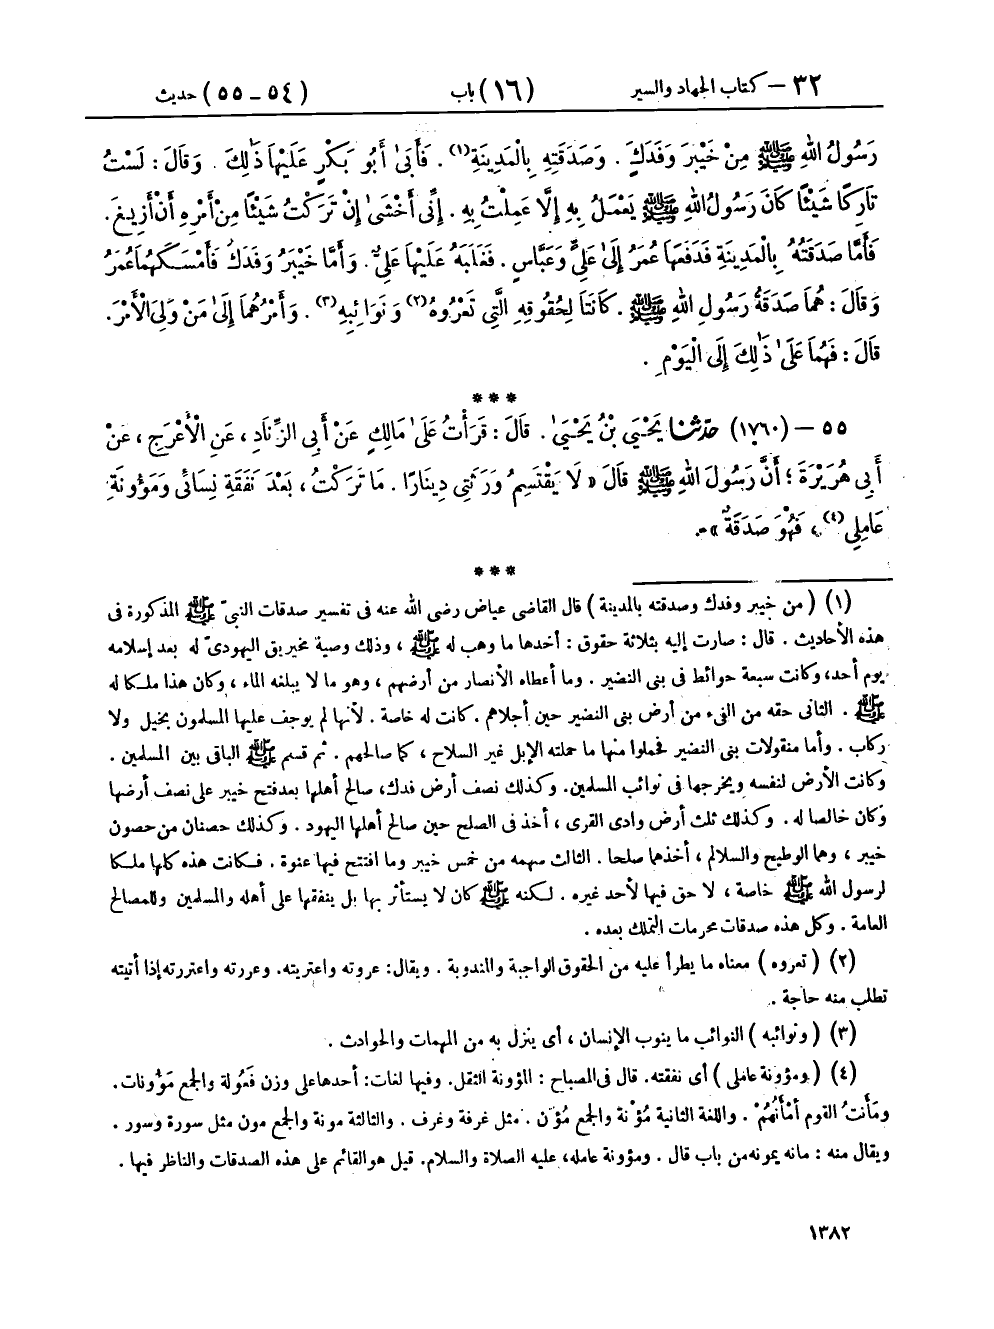 ٣٢ – كتاب الجهاد والسير (١٦) باب (٥٤ – ٥٥) حديث
رَسُولُ اللهِ ﷺ مِنْ خَيْبَرَ وَفَدَكٍ . وَصَدَقَتِهِ بِالْمَدِينَةِ(١) . فَأَبَىٰ أَبُو بَكْرٍ عَلَيْهَا ذَٰلِكَ . وَقَالَ : لَسْتُ
تَارِكًا شَيْئًا كَانَ رَسُولُ اللهِ ﷺ يَعْمَلُ بِهِ إِلَّا عَمِلْتُ بِهِ . إِنِّي أَخْشَىٰ إِنْ تَرَكْتُ شَيْئًا مِنْ أَمْرِهِ أَنْ أَزِيغَ .
فَأَمَّا صَدَقَتُهُ بِالْمَدِينَةِ فَدَفَعَهَا عُمَرُ إِلَىٰ عَلِيٍّ وَعَبَّاسٍ . فَغَلَبَهُ عَلَيْهَا عَلِيٌّ . وَأَمَّا خَيْبَرُ وَفَدَكُ فَأَمْسَكَهُمَا عُمَرُ
وَقَالَ : هُمَا صَدَقَةُ رَسُولِ اللهِ ﷺ . كَانَتَا لِحُقُوقِهِ الَّتِي تَعْرُوهُ(٢) وَنَوَائِبِهِ(٣) . وَأَمْرُهُمَا إِلَىٰ مَنْ وَلِيَ الْأَمْرَ .
قَالَ : فَهُمَا عَلَىٰ ذَٰلِكَ إِلَى الْيَوْمِ .
***
٥٥ – (١٧٦٠) حَدَّثَنَا يَحْيَى بْنُ يَحْيَىٰ . قَالَ : قَرَأْتُ عَلَىٰ مَالِكٍ عَنْ أَبِي الزِّنَادِ ، عَنِ الْأَعْرَجِ ، عَنْ
أَبِي هُرَيْرَةَ ؛ أَنَّ رَسُولَ اللهِ ﷺ قَالَ « لَا يَقْتَسِمُ وَرَثَتِي دِينَارًا . مَا تَرَكْتُ ، بَعْدَ نَفَقَةِ نِسَائِي وَمَؤُونَةِ
عَامِلِي(٤) ، فَهُوَ صَدَقَةٌ » .
***
(١) ( من خيبر وفدك وصدقته بالمدينة ) قال القاضى عياض رضى الله عنه فى تفسير صدقات النبىّ ﷺ المذكورة فى
هذه الأحاديث . قال : صارت إليه بثلاثة حقوق : أحدها ما وهب له ﷺ ، وذلك وصية مخيريق اليهودىّ له بعد إسلامه
يوم أحد، وكانت سبعة حوائط فى بنى النضير . وما أعطاه الأنصار من أرضهم ، وهو ما لا يبلغه الماء ، وكان هذا ملكا له
ﷺ . الثانى حقه من الفىء من أرض بنى النضير حين أجلاهم . كانت له خاصة . لأنها لم يوجف عليها المسلمون بخيل ولا
ركاب . وأما منقولات بنى النضير فحملوا منها ما حملته الإبل غير السلاح ، كما صالحهم . ثم قسم ﷺ الباقى بين المسلمين .
وكانت الأرض لنفسه ويخرجها فى نوائب المسلمين. وكذلك نصف أرض فدك، صالح أهلها بعد فتح خيبر على نصف أرضها
وكان خالصا له . وكذلك ثلث أرض وادى القرى ، أخذ فى الصلح حين صالح أهلها اليهود . وكذلك حصنان من حصون
خيبر ، وهما الوطيح والسلالم ، أخذهما صلحا . الثالث سهمه من خمس خيبر وما افتتح فيها عنوة . فكانت هذه كلها ملكا
لرسول الله ﷺ خاصة ، لا حق فيها لأحد غيره . لكنه ﷺ كان لا يستأثر بها بل ينفقها على أهله والمسلمين وللمصالح
العامة . وكل هذه صدقات محرمات التملك بعده .
(٢) ( تعروه ) معناه ما يطرأ عليه من الحقوق الواجبة والمندوبة . ويقال: عروته واعتريته. وعررته واعتررته إذا أتيته
تطلب منه حاجة .
(٣) ( ونوائبه ) النوائب ما ينوب الإنسان ، أى ينزل به من المهمات والحوادث .
(٤) ( ومؤونة عاملى ) أى نفقته. قال فى المصباح : المؤونة الثقل. وفيها لغات: أحدها على وزن فَعُولة والجمع مَؤُونات.
ومَأَنتُ القوم أَمْأَنُهُمْ . واللغة الثانية مُؤْنة والجمع مُؤَن . مثل غرفة وغرف . والثالثة مونة والجمع مون مثل سورة وسور .
ويقال منه : مانه يمونه من باب قال . ومؤونة عامله، عليه الصلاة والسلام. قيل هو القائم على هذه الصدقات والناظر فيها .
١٣٨٢